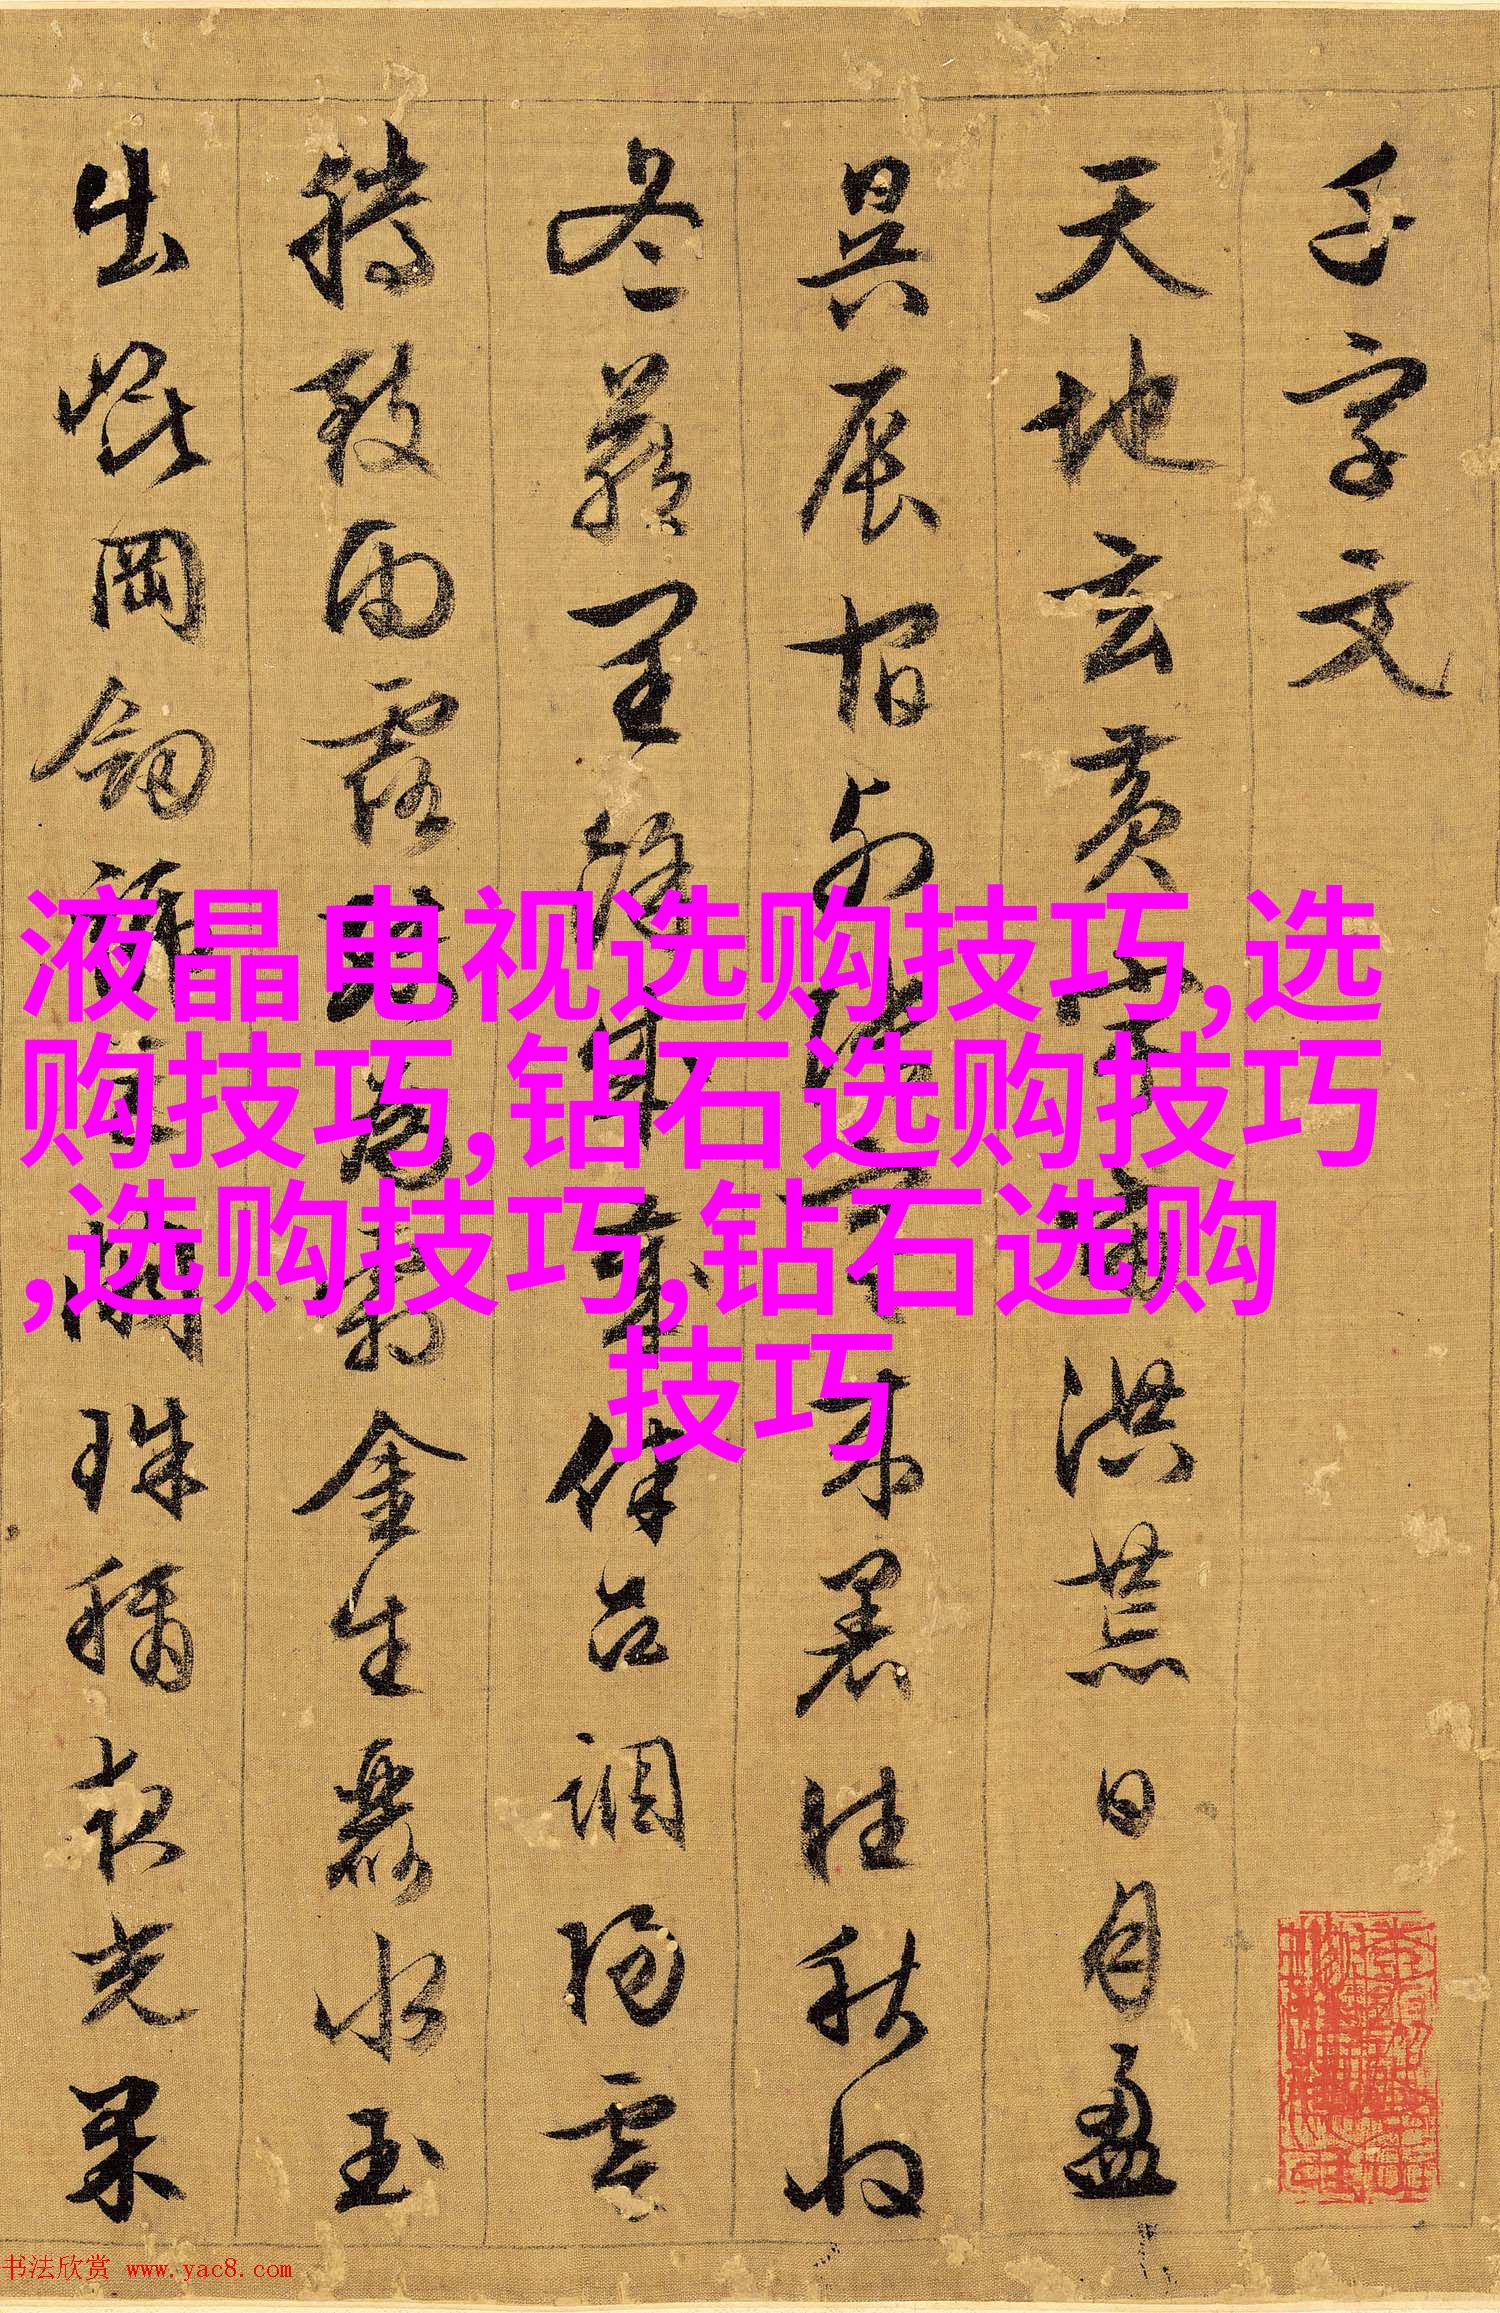 千字文
天地玄黃宇宙洪荒日月盈
昃辰宿列張寒来暑往秋收
冬藏閏餘成歲律召調陽雲
騰致雨露結為霜金生麗水玉
出崐岡劍號巨闕珠稱夜光果
液晶电视选购技巧,选
购技巧,钻石选购技巧
,选购技巧,钻石选购
技巧
书法欣赏 www.yac8.com